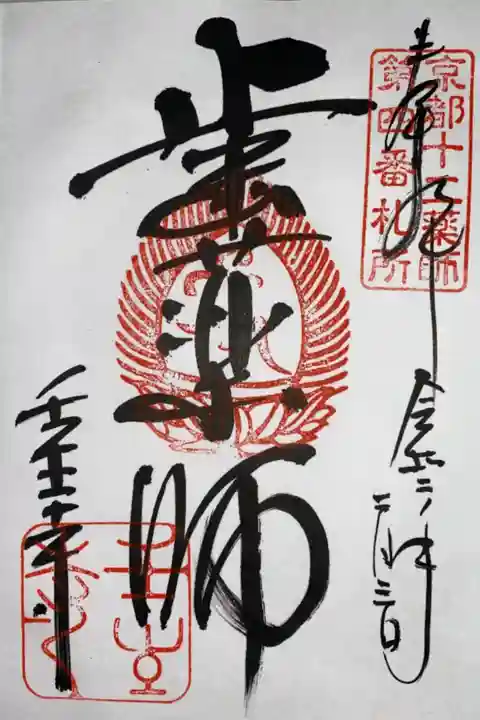 京都十二薬師
第四番札所
奉拝
令和二年
二月三日
歯薬師
壬生寺